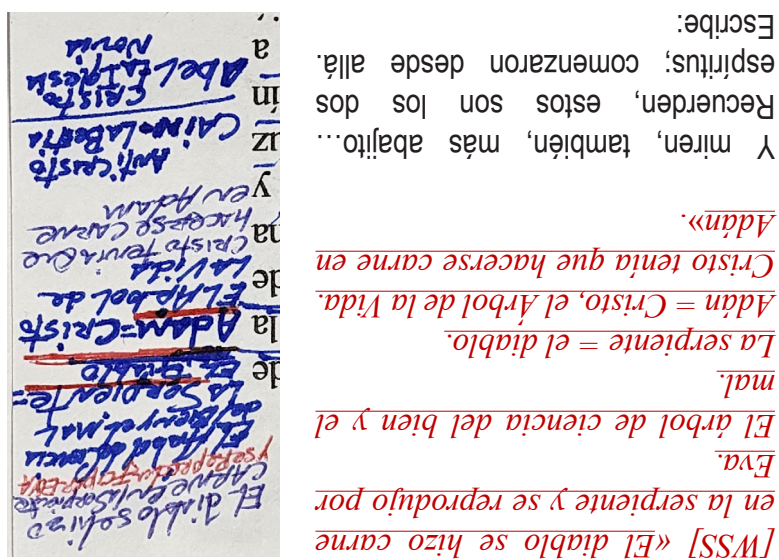 [WSS] «El diablo se hizo carne
en la serpiente y se reprodujo por
Eva.
El árbol de ciencia del bien y el
mal.
La serpiente = el diablo.
Adán = Cristo, el Árbol de la Vida.
Cristo tenía que hacerse carne en
Adán».
Y miren, también, más abajito…
Recuerden, estos son los dos
espíritus; comenzaron desde allá.
Escribe:
El diablo se hizo
carne en la serpiente
y se reprodujo por Eva
El Arbol de
del Bien y el mal
La Serpiente=
El Diablo
de
la
Adam=Cristo
El Arbol de
de
La Vida
na
Cristo tenia que
hacerse carne
y
en Adam
Anticristo
uz
Cain=La Bestia
ín
Cristo
Abel Iglesia
a
Novia